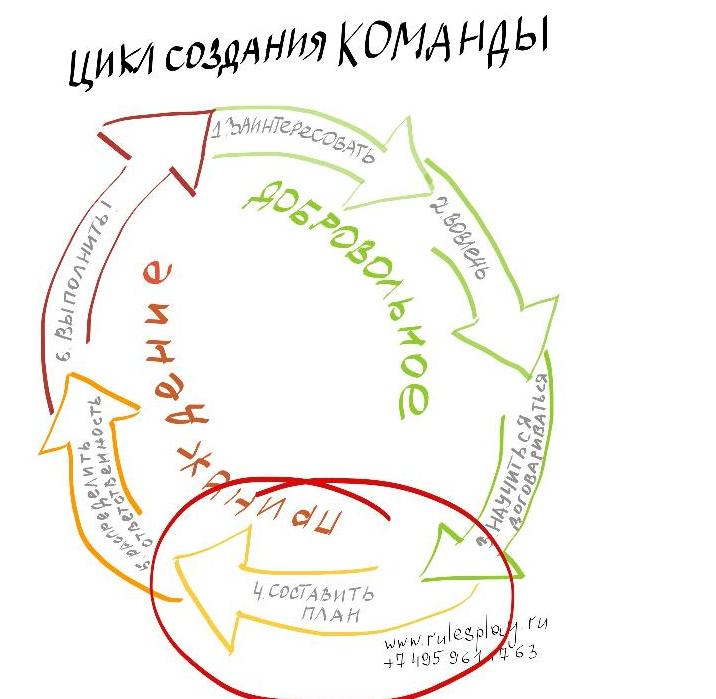 ЦИКЛ СОЗДАНИЯ КОМАНДЫ
1. ЗАИНТЕРЕСОВАТЬ
2. ВОВЛЕЧЬ
3. НАУЧИТЬСЯ
ДОГОВАРИВАТЬСЯ
4. СОСТАВИТЬ
ПЛАН
5. РАСПРЕДЕЛИТЬ
ОТВЕТСТВЕННОСТЬ
6. ВЫПОЛНИТЬ!
ДОБРОВОЛЬНОЕ
принуждение
www.rulesplay.ru
+7 495 961